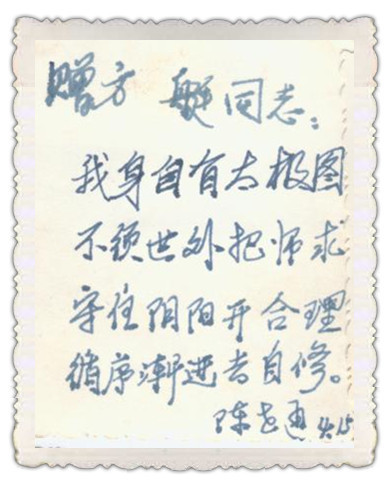 赠方艇同志：
我身自有太极图
不须世外把师求
守住阴阳开合理
循序渐进去自修。
陈志通 4.15